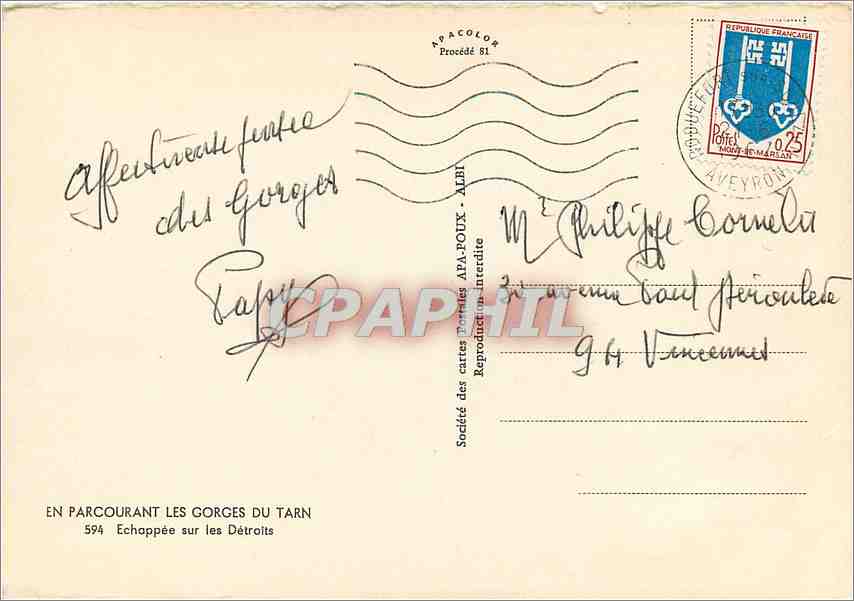 APACOLOR
Procédé 81
REPUBLIQUE FRANÇAISE
Postes 0,25
MONT-DE-MARSAN
ROQUEFORT
AVEYRON
Affectueuse pensée
des Gorges
Papy
Société des cartes Postales APA-POUX - ALBI
Reproduction interdite
Mr Philippe Cornelis
avenue Paul Déroulède
94 Vincennes
CPAPHIL
EN PARCOURANT LES GORGES DU TARN
594 Echappée sur les Détroits